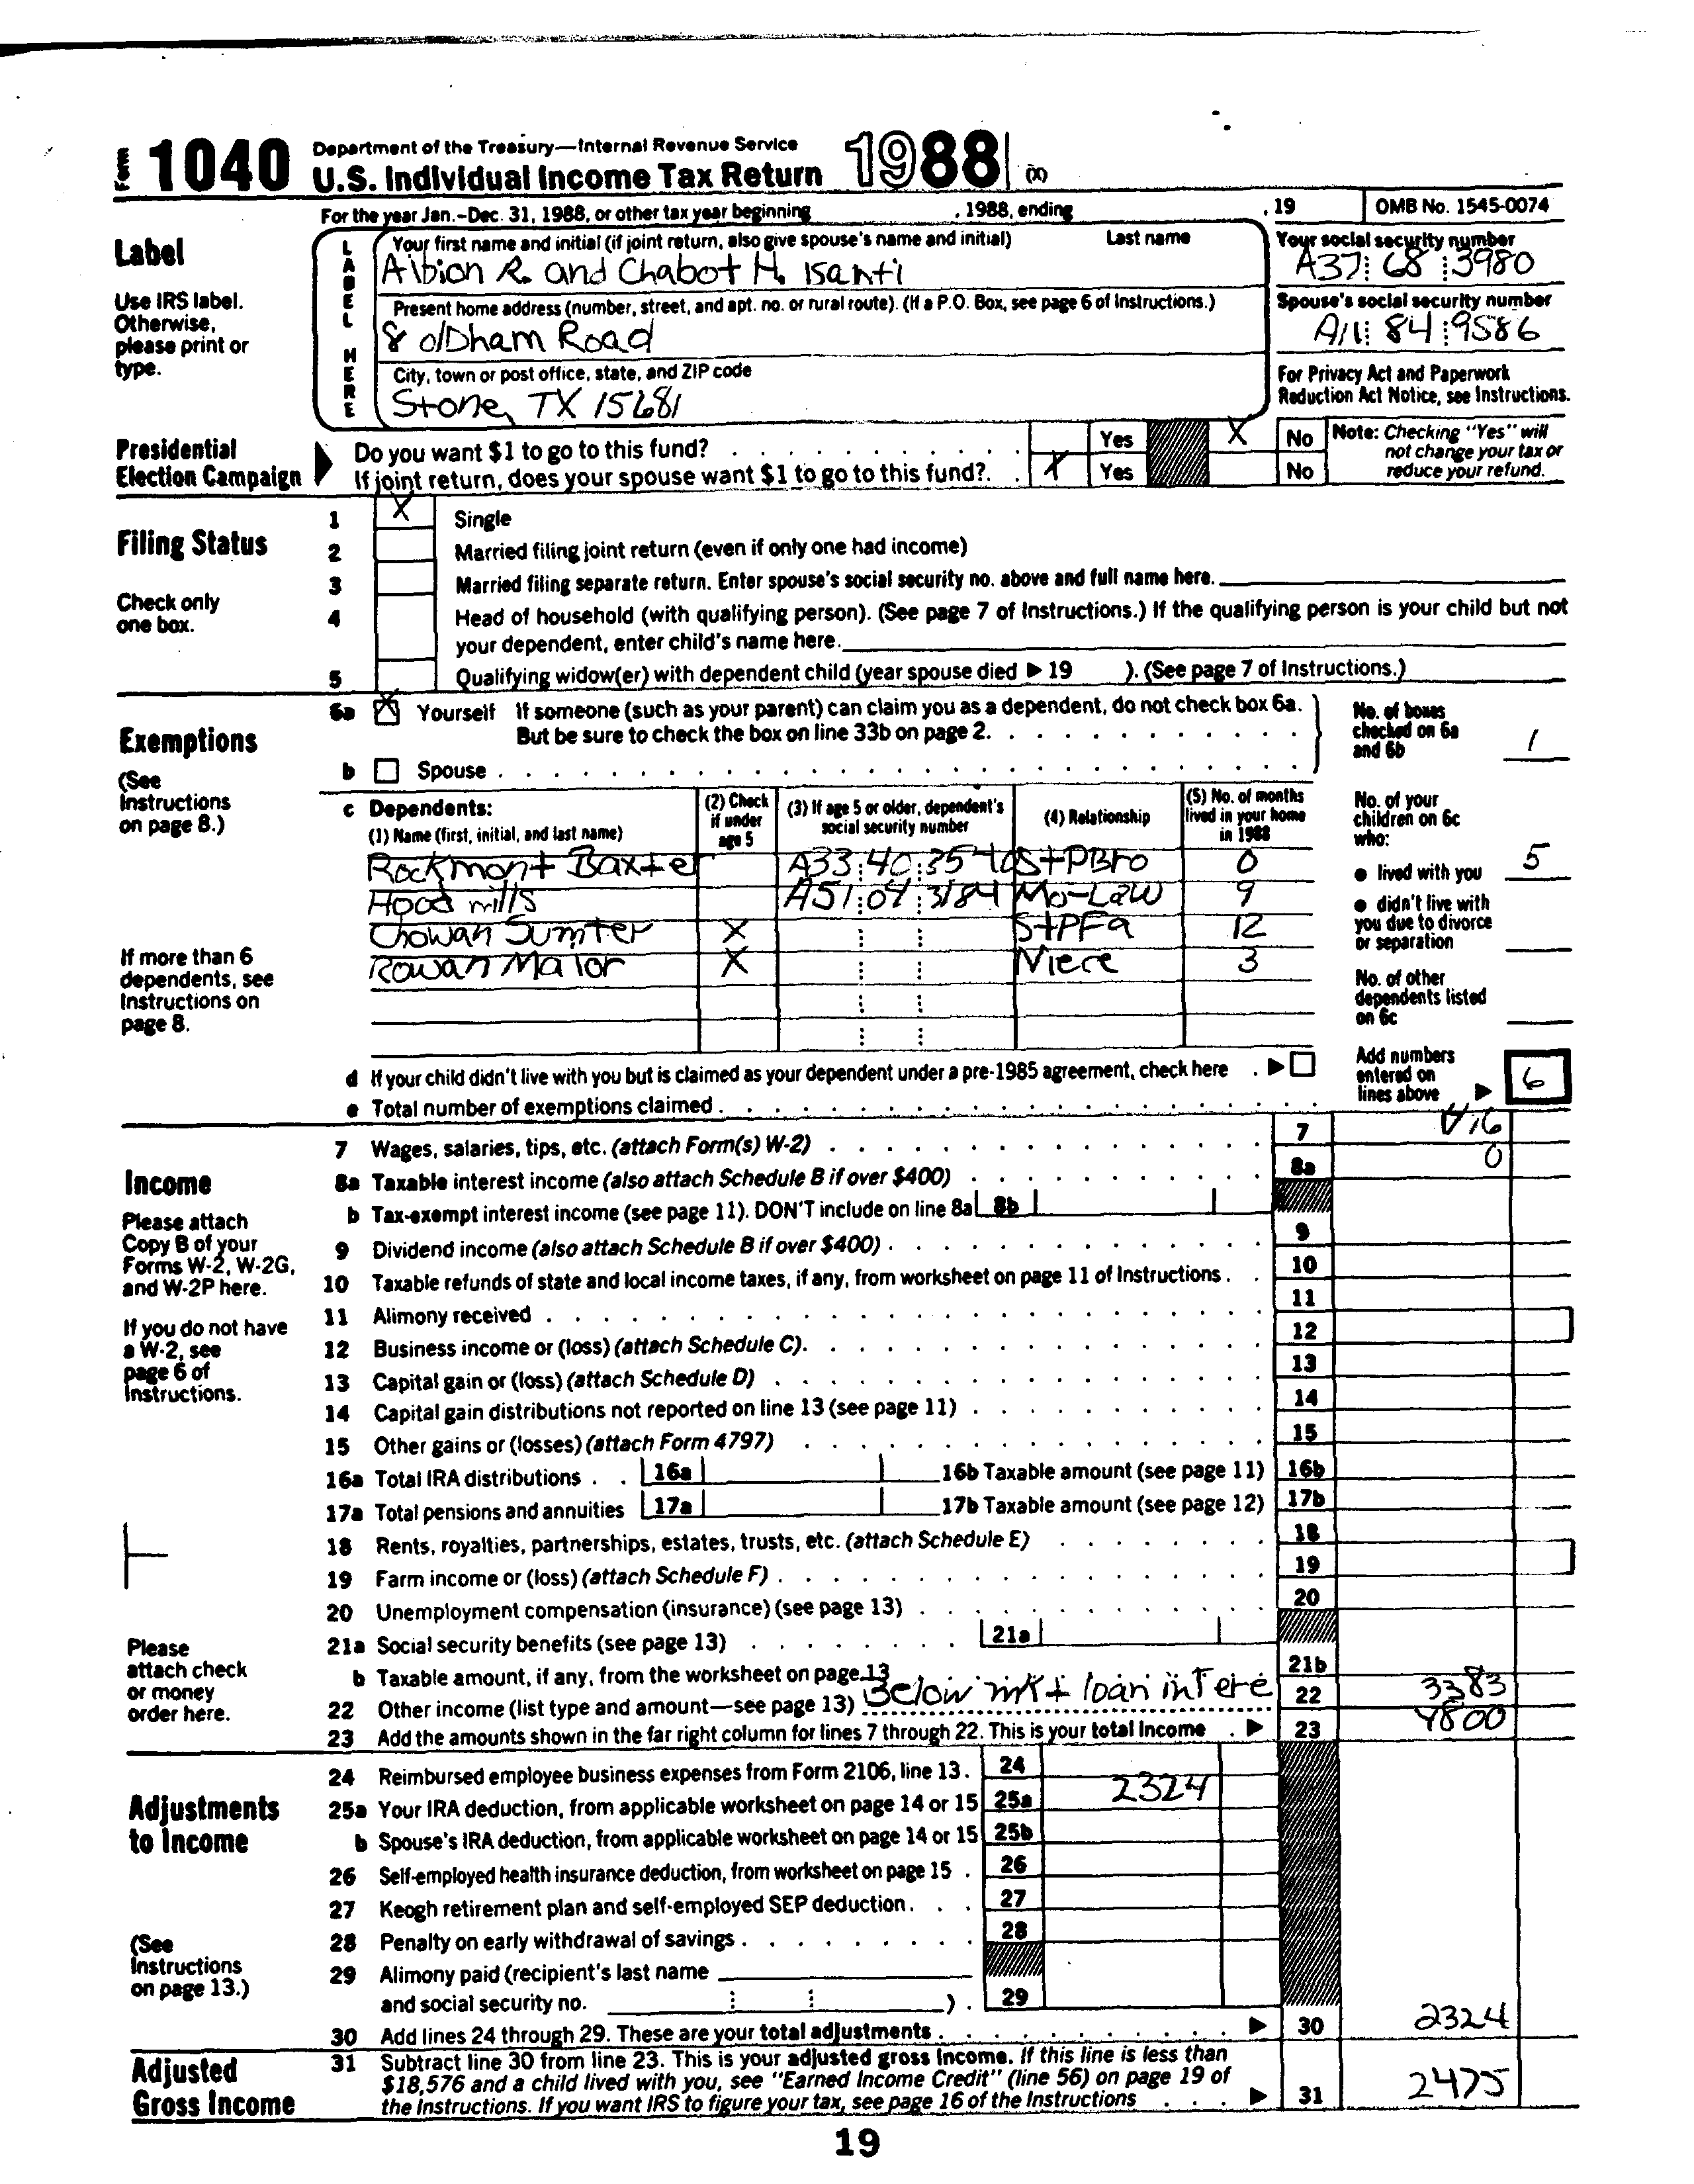 Form 1040 Department of the Treasury—Internal Revenue Service
U.S. Individual Income Tax Return 1988 (X)
For the year Jan.-Dec. 31, 1988, or other tax year beginning , 1988, ending , 19 OMB No. 1545-0074
Label
Use IRS label.
Otherwise,
please print or
type.
LABEL HERE
Your first name and initial (if joint return, also give spouse's name and initial) Last name
Albion R. and Chabot H. Isanti
Your social security number
A37 68 3980
Present home address (number, street, and apt. no. or rural route). (If a P.O. Box, see page 6 of Instructions.)
8 olDham Road
Spouse's social security number
A11 84 9586
City, town or post office, state, and ZIP code
Stone, TX 15681
For Privacy Act and Paperwork
Reduction Act Notice, see Instructions.
Presidential
Election Campaign
Do you want $1 to go to this fund? Yes X No
If joint return, does your spouse want $1 to go to this fund?. X Yes No
Note: Checking "Yes" will
not change your tax or
reduce your refund.
Filing Status
Check only
one box.
1 X Single
2 Married filing joint return (even if only one had income)
3 Married filing separate return. Enter spouse's social security no. above and full name here.
4 Head of household (with qualifying person). (See page 7 of Instructions.) If the qualifying person is your child but not
your dependent, enter child's name here.
5 Qualifying widow(er) with dependent child (year spouse died ▶ 19 ). (See page 7 of Instructions.)
Exemptions
(See
Instructions
on page 8.)
6a X Yourself If someone (such as your parent) can claim you as a dependent, do not check box 6a.
But be sure to check the box on line 33b on page 2.
b Spouse
No. of boxes
checked on 6a
and 6b 1
c Dependents:
(1) Name (first, initial, and last name)
(2) Check
if under
age 5
(3) If age 5 or older, dependent's
social security number
(4) Relationship
(5) No. of months
lived in your home
in 1988
Rockmont Baxter A33 40 35 StPBro 0
Hood mills A51 04 3184 Mo-Law 9
Chowan Sumter X StPFa 12
Rowan Malor X Niece 3
If more than 6
dependents, see
Instructions on
page 8.
No. of your
children on 6c
who:
● lived with you 5
● didn't live with
you due to divorce
or separation
No. of other
dependents listed
on 6c
d If your child didn't live with you but is claimed as your dependent under a pre-1985 agreement, check here . ▶
e Total number of exemptions claimed
Add numbers
entered on
lines above ▶ 6
Income
Please attach
Copy B of your
Forms W-2, W-2G,
and W-2P here.
If you do not have
a W-2, see
page 6 of
Instructions.
Please
attach check
or money
order here.
7 Wages, salaries, tips, etc. (attach Form(s) W-2) 7
8a Taxable interest income (also attach Schedule B if over $400) 8a 0
b Tax-exempt interest income (see page 11). DON'T include on line 8a 8b
9 Dividend income (also attach Schedule B if over $400) 9
10 Taxable refunds of state and local income taxes, if any, from worksheet on page 11 of Instructions 10
11 Alimony received 11
12 Business income or (loss) (attach Schedule C) 12
13 Capital gain or (loss) (attach Schedule D) 13
14 Capital gain distributions not reported on line 13 (see page 11) 14
15 Other gains or (losses) (attach Form 4797) 15
16a Total IRA distributions 16a 16b Taxable amount (see page 11) 16b
17a Total pensions and annuities 17a 17b Taxable amount (see page 12) 17b
18 Rents, royalties, partnerships, estates, trusts, etc. (attach Schedule E) 18
19 Farm income or (loss) (attach Schedule F) 19
20 Unemployment compensation (insurance) (see page 13) 20
21a Social security benefits (see page 13) 21a
b Taxable amount, if any, from the worksheet on page 13 21b
22 Other income (list type and amount—see page 13) Below mkt loan intere 22 3383
23 Add the amounts shown in the far right column for lines 7 through 22. This is your total income ▶ 23 4800
Adjustments
to Income
(See
Instructions
on page 13.)
24 Reimbursed employee business expenses from Form 2106, line 13. 24
25a Your IRA deduction, from applicable worksheet on page 14 or 15 25a 2324
b Spouse's IRA deduction, from applicable worksheet on page 14 or 15 25b
26 Self-employed health insurance deduction, from worksheet on page 15 26
27 Keogh retirement plan and self-employed SEP deduction 27
28 Penalty on early withdrawal of savings 28
29 Alimony paid (recipient's last name
and social security no. ) 29
30 Add lines 24 through 29. These are your total adjustments ▶ 30 2324
Adjusted
Gross Income
31 Subtract line 30 from line 23. This is your adjusted gross income. If this line is less than
$18,576 and a child lived with you, see "Earned Income Credit" (line 56) on page 19 of
the Instructions. If you want IRS to figure your tax, see page 16 of the Instructions ▶ 31 2475
19